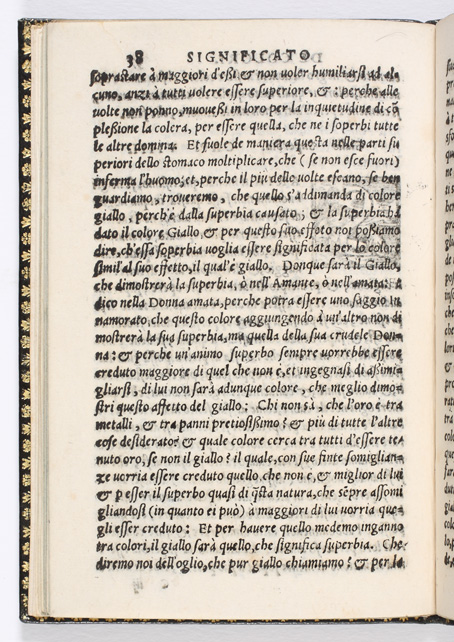 38 SIGNIFICATO
soprastare à maggiori d'eßi & non voler humiliarsi ad al=
cuno, anzi à tutti volere essere superiore, & : perche alle
volte non ponno, muoueßi in loro per la inquietudine di cō
pleßione la colera, per essere quella, che ne i soperbi tutte
le altre domina. Et suole de maniera questa nelle parti su
periori dello stomaco moltiplicare, che ( se non esce fuori)
inferma l'huomo; et, perche il più delle volte escano, se ben
guardiamo, troueremo, che quello s'addimanda di colore
giallo, perch'è dalla superbia causato ; & la superbia hà
dato il colore Giallo, & per questo suo effeto not poßiamo
dire, ch'essa soperbia voglia essere significata per lo colore
simil'al suo effetto, il qual'è giallo. Donque sarà il Giallo,
che dimostrerà la superbia, ò nell'Amante, ò nell'amata:
dico nella Donna amata, perche potra essere uno saggio in
namorato, che questo colore aggiungendo à un'altro non di
mostrerà la sua superbia, ma quella della sua crudele Don=
na : & perche un'animo superbo sempre vorrebbe essere
creduto maggiore di quel che non è, et ingegnasi di aßimi=
gliarsi, di lui non sarà adunque colore, che meglio dimo=
stri questo affetto del giallo : Chi non sà, che l'oro è tra
metalli, & tra panni pretiosißimo? & più di tutte l'altre
cose desiderato? & quale colore cerca tra tutti d'essere te=
nuto oro, se non il giallo? il quale, con sue finte somiglian=
ze vorria essere creduto quello, che non è, & miglior di lui
& p esser il superbo quasi di q̄sta natura, che sēpre assomi
gliandosi (in quanto ei può) à maggiori di lui vorria que=
gli esser creduto : Et per hauere quello medemo inganno
tra colori, il giallo sarà quello, che significa superbia. Che
diremo noi dell'oglio, che pur giallo chiamiamo? & per la